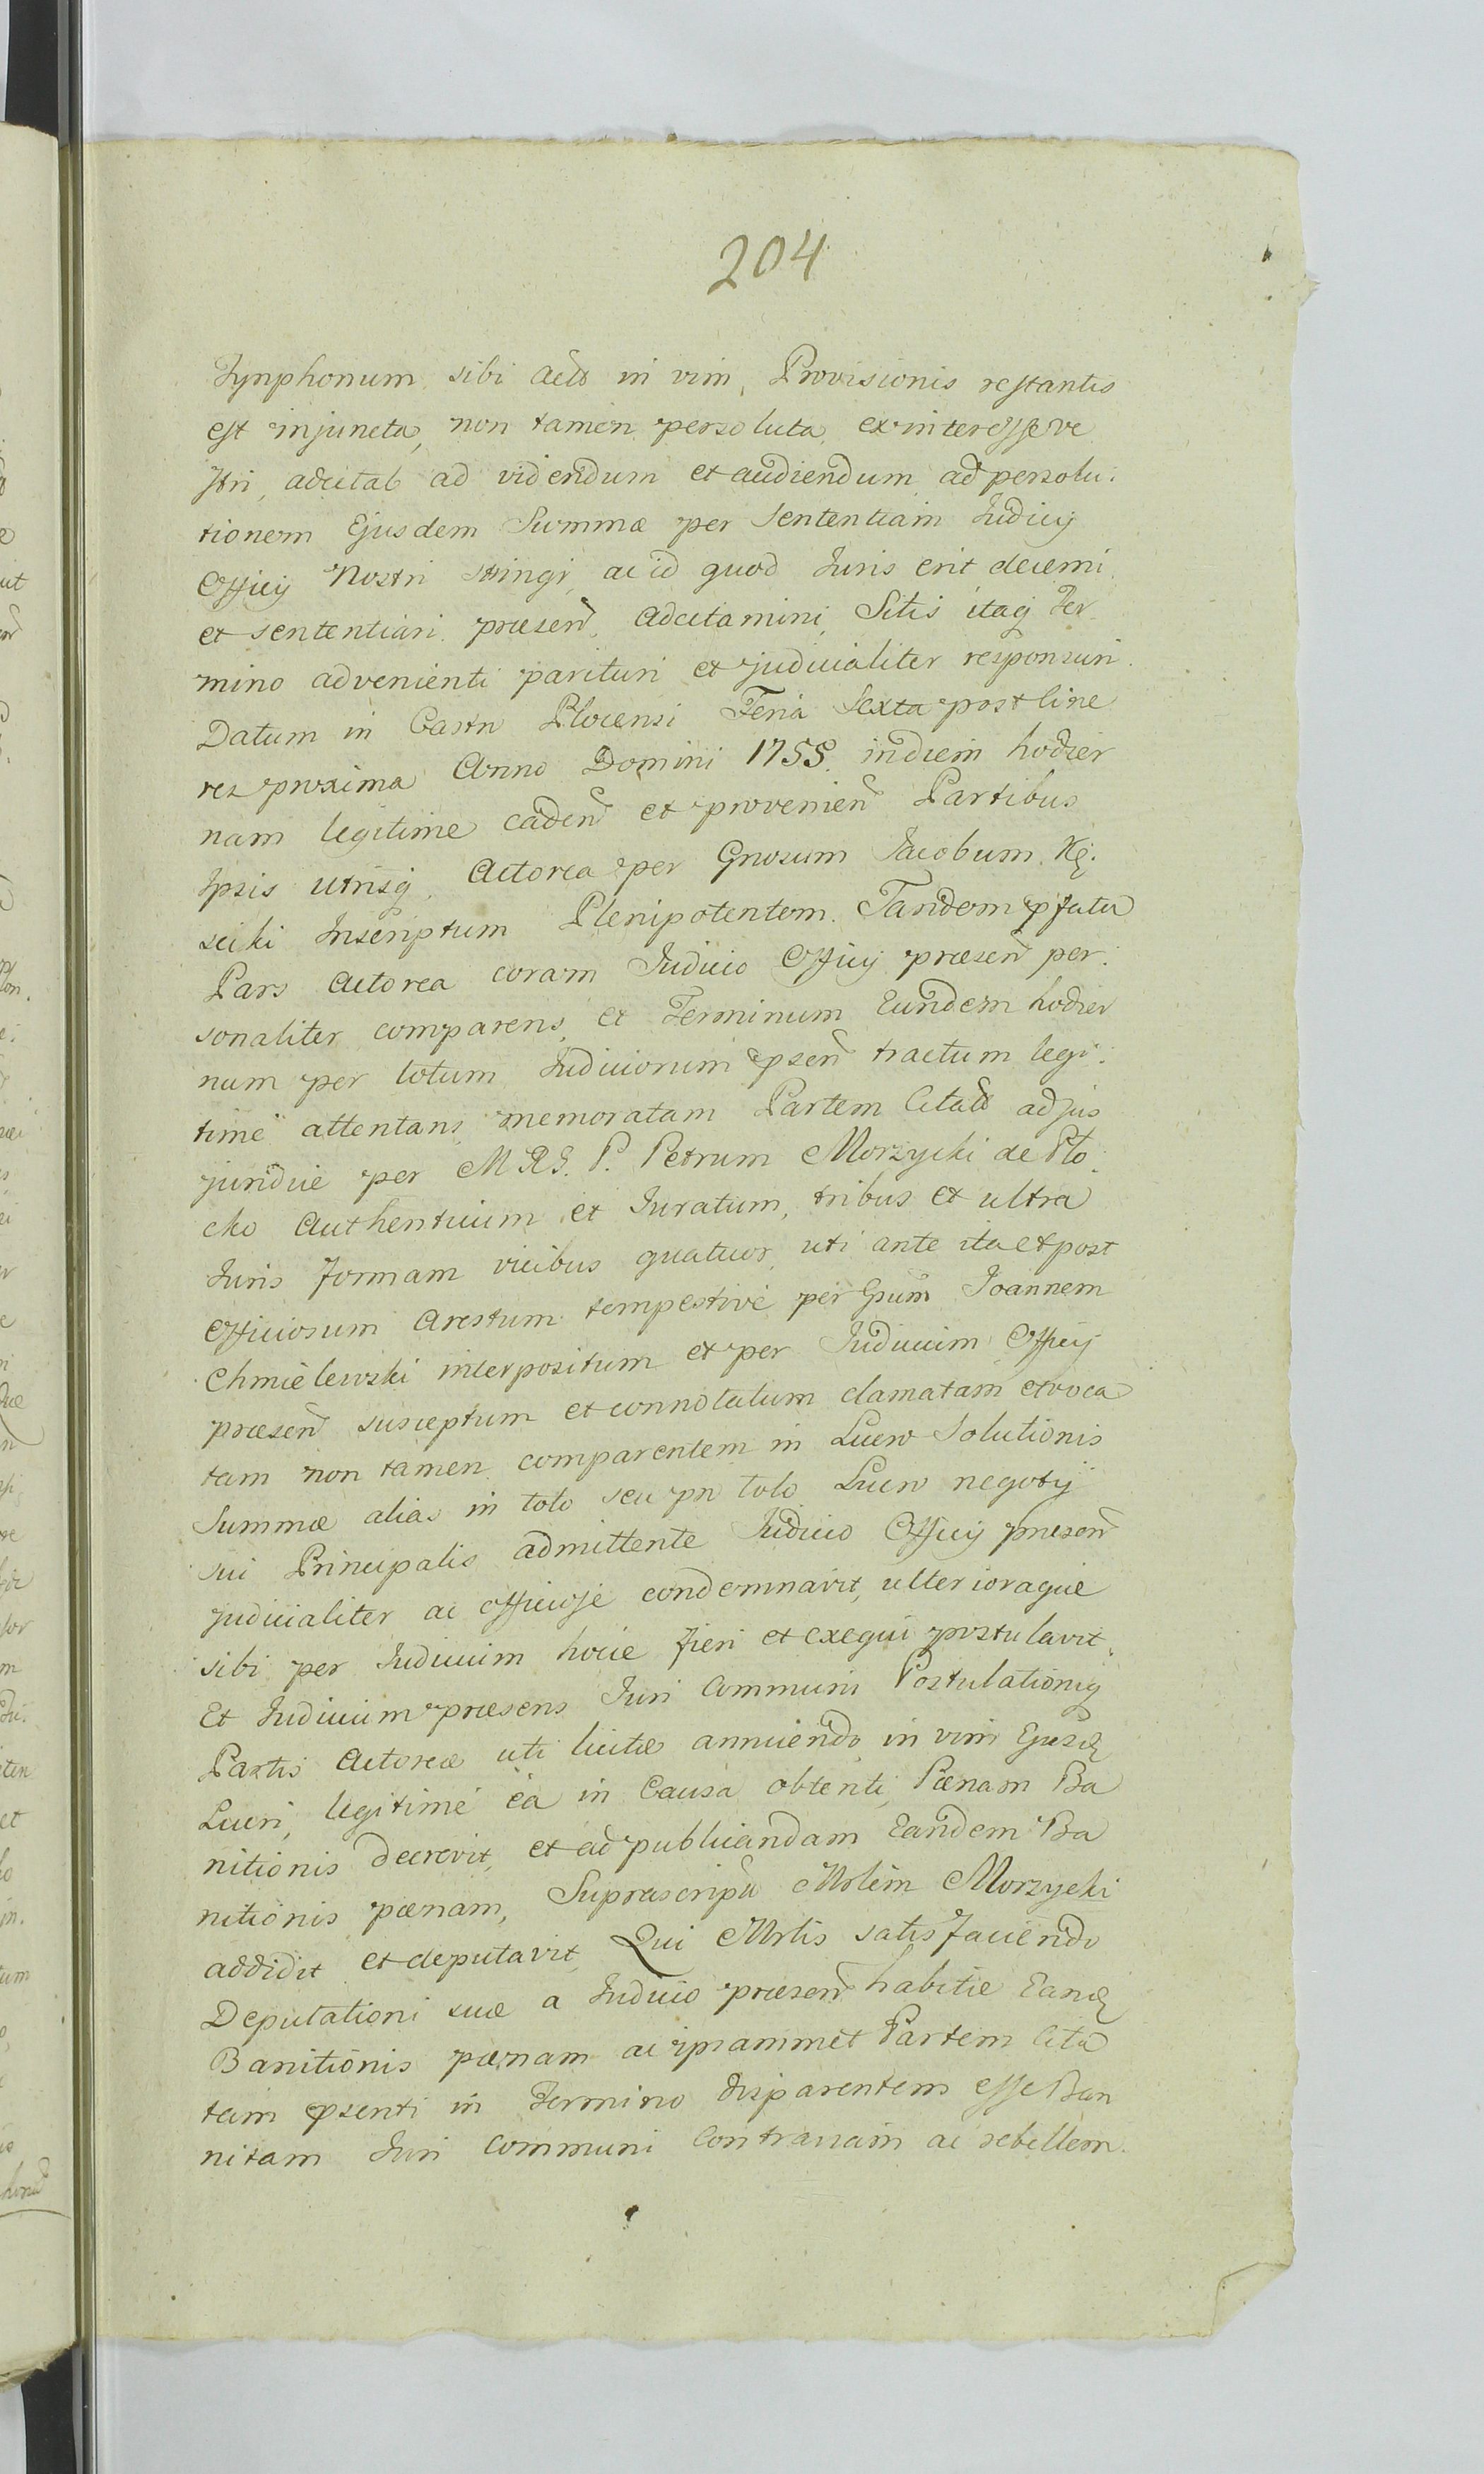 204
Tynphonum sibi acto in vim, Provisionis restantis
est injuncta, non tamen persoluta, ex interesse ve
stri, adcitat ad videndum et audiendum ad persolu:
tionem Ejusdem Summæ per Sententiam Judicij
Officij Nostri stringi, ac id quod Juris erit decerni
et sententiari præsen adcitamini, Sitis itaq Ter
mino advenienti parituri et judicialiter responsuri
Datum in Castro Plocensi Feria Sexta post Cine
res proxima Anno Domini 1755. in diem hodier
nam legitime caden et provenien Partibus
Ipsis utrisq, Actorea per Gnosum Jacobum Kę:
sicki Inscriptum Plenipotentem. Tandem pfata
Pars Actorea coram Judicio Officij præsen per:
sonaliter comparens, et Terminum Eundem hodier
num per totum Judiciorum psen tractum legi:
time attentans memoratam Partem Citat ad jus
juridice per M R G. P. Petrum Morzycki de Plo:
cko Authenticum et Juratum, tribus et ultra
Juris formam vicibus quatuor, uti ante ita et post
Officiosum Arestum tempestive per Gsum Joannem
Chmielewski interpositum et per Judicium Officij
præsen susceptum et connotatum clamatam et voca
tam non tamen comparentem in Lucro Solutionis
Summæ alias in toto seu pro toto Lucro negotij
sui Principalis admittente Judicio Officij præsen
judicialiter ac officiose condemnavit, ulterioraque
sibi per Judicium hocce fieri et exequi postulavit.
Et Judicium præsens Juri Communi Postulationiq
Partis Actoreæ uti licitæ annuendo in vim Ejusd
Lucri, legitime ea in Causa obtenti, Pænam Ba
nitionis decrevit, et ad publicandam Eandem Ba
nitionis pænam, Suprascript Mrlem Morzycki
addidit et deputavit, Qui Mrlis satisfaciendo
Deputationi suæ a Judicio præsen habitæ Eand
Banitionis pænam ac ipsammet Partem Cita
tam psenti in Termino disparentem esse Ban
nitam Juri Communi Contrariam ac rebellem.